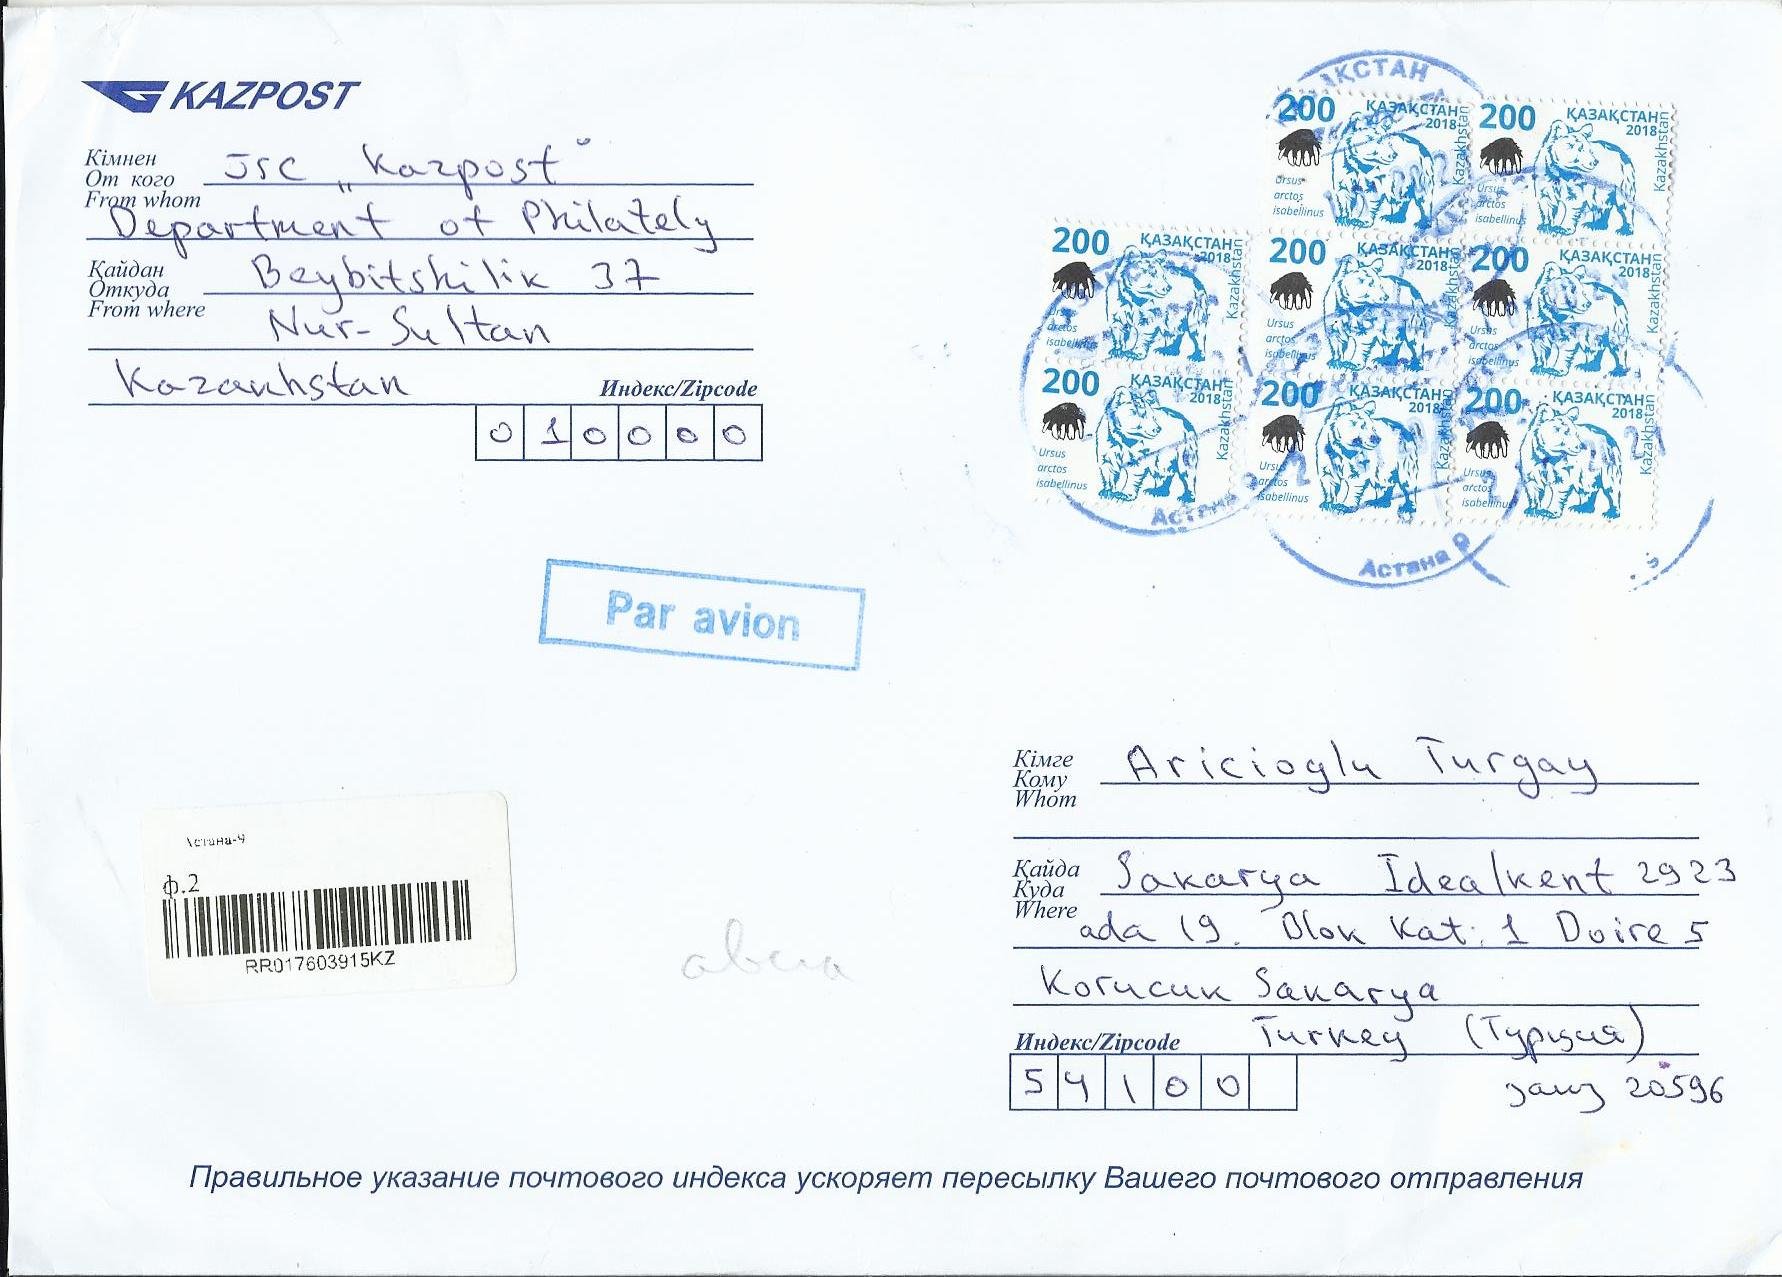 KAZPOST
Кімнен
От кого
From whom
JSC „Kazpost"
Department of Philately
Қайдан
Откуда
From where
Beybitshilik 37
Nur-Sultan
Kazakhstan
Индекс/Zipcode
010000
ҚАЗАҚСТАН
200 ҚАЗАҚСТАН 2018 Kazakhstan Ursus arctos isabellinus
200 ҚАЗАҚСТАН 2018 Kazakhstan Ursus arctos isabellinus
200 ҚАЗАҚСТАН 2018 Kazakhstan Ursus arctos isabellinus
200 ҚАЗАҚСТАН 2018 Kazakhstan Ursus arctos isabellinus
200 ҚАЗАҚСТАН 2018 Kazakhstan Ursus arctos isabellinus
200 ҚАЗАҚСТАН 2018 Kazakhstan Ursus arctos isabellinus
200 ҚАЗАҚСТАН 2018 Kazakhstan Ursus arctos isabellinus
200 ҚАЗАҚСТАН 2018 Kazakhstan Ursus arctos isabellinus
Астана 9
Астана 9
Par avion
Кімге
Кому
Whom
Aricioglu Turgay
Қайда
Куда
Where
Sakarya Idealkent 2923
ada 19. Blok Kat: 1 Doire 5
Korucuk Sakarya
Turkey (Турция)
Индекс/Zipcode
54100
20596
Астана-9
ф.2
RR017603915KZ
авиа
Правильное указание почтового индекса ускоряет пересылку Вашего почтового отправления